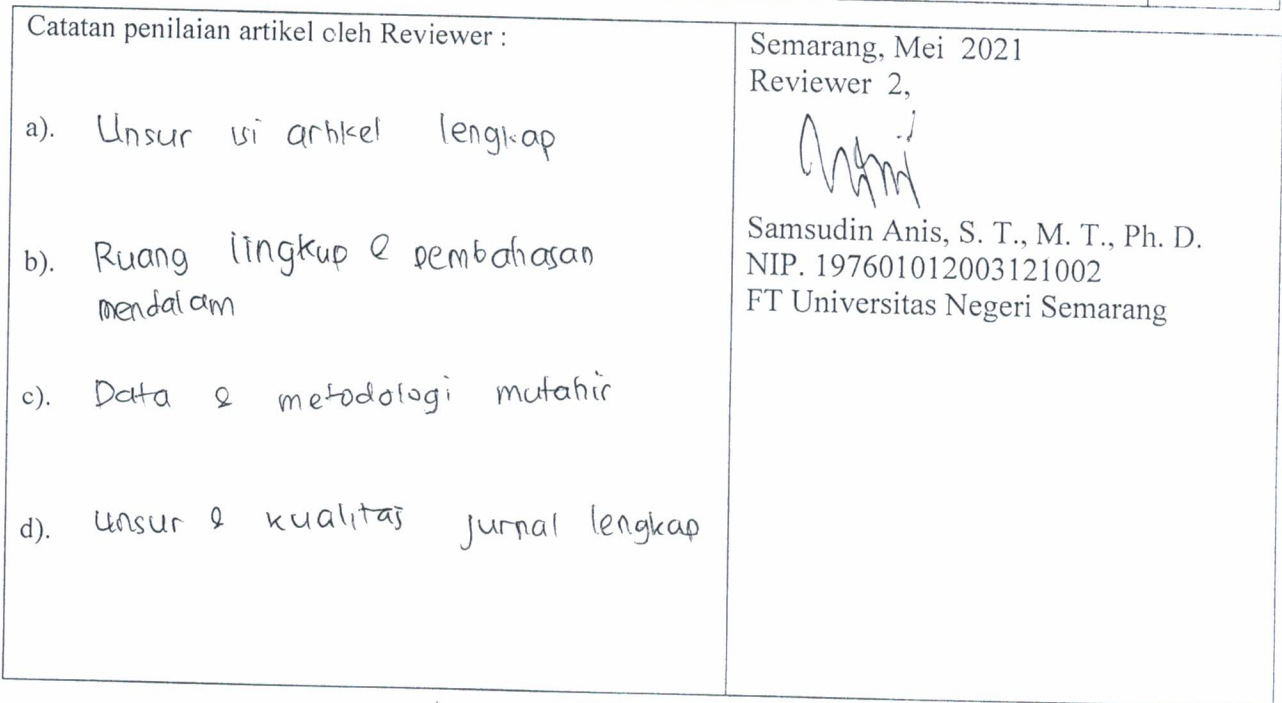 Catatan penilaian artikel oleh Reviewer :
a). Unsur isi artikel lengkap
b). Ruang lingkup & pembahasan
mendalam
c). Data & metodologi mutahir
d). Unsur & kualitas jurnal lengkap
Semarang, Mei 2021
Reviewer 2,
Samsudin Anis, S. T., M. T., Ph. D.
NIP. 197601012003121002
FT Universitas Negeri Semarang